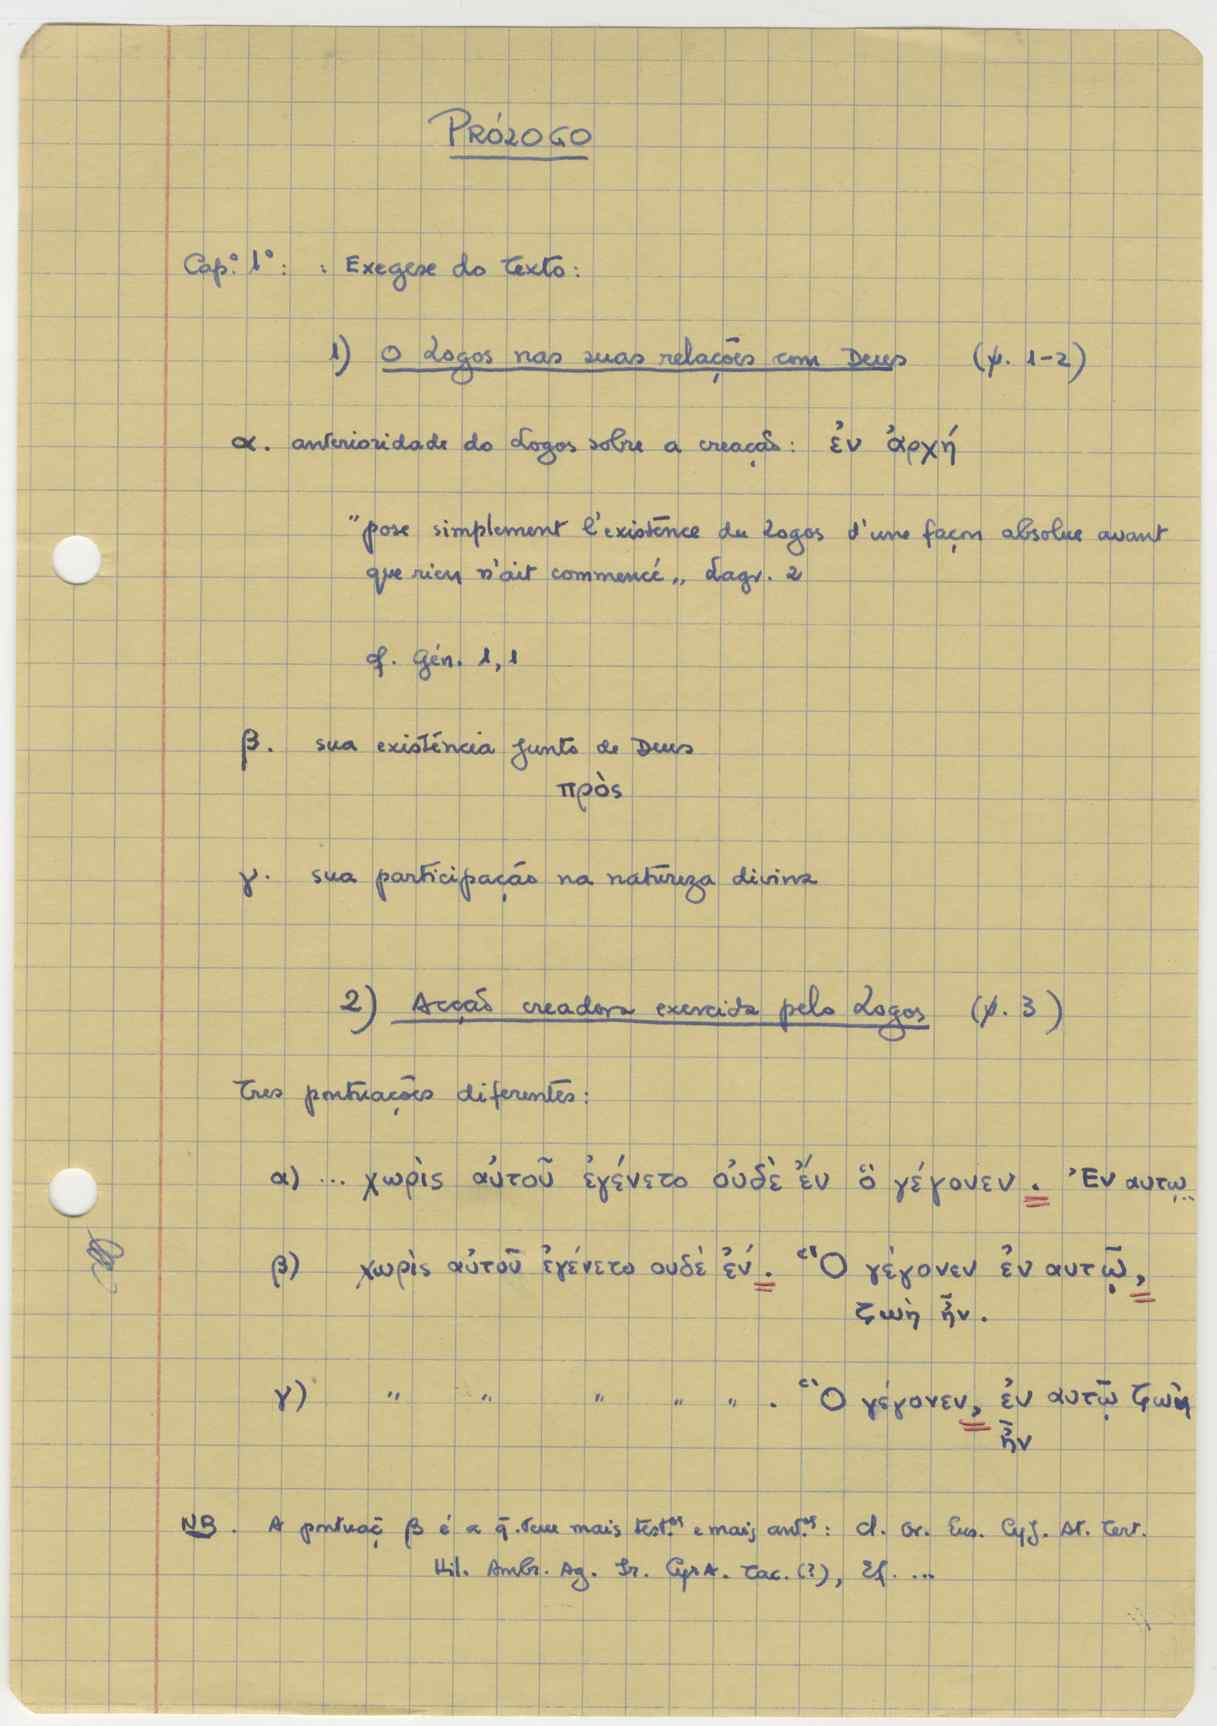 PRÓLOGO
Cap.º 1º: : Exegese do texto:
1) O Logos nas suas relações com Deus (℣. 1-2)
α. anterioridade do Logos sobre a creação: ἐν ἀρχή
"pose simplement l'existence du Logos d'une façon absolue avant
que rien n'ait commencé„ Lagr. 2
cf. Gén. 1,1
β. sua existência junto de Deus
πρὸς
γ. sua participação na natureza divina
2) Acção creadora exercida pelo Logos (℣. 3)
Tres pontuações diferentes:
α) ... χωρὶς αὐτοῦ ἐγένετο οὐδὲ ἕν ὃ γέγονεν. Ἐν αυτῳ...
β) χωρὶς αὐτοῦ ἐγένετο ουδέ ἐν. Ὃ γέγονεν ἐν αυτῷ,
ζωὴ ἦν.
γ) " " " " " . Ὃ γέγονεν, ἐν αυτῷ ζωὴ
ἦν
NB. A pontuaç̃ β é a q̃. tem mais test.os e mais ant.os: Cl. Or. Eus. CyJ. At. Tert.
Hil. Ambr. Ag. Ir. CyrA. Tac. (?), Ef. ...